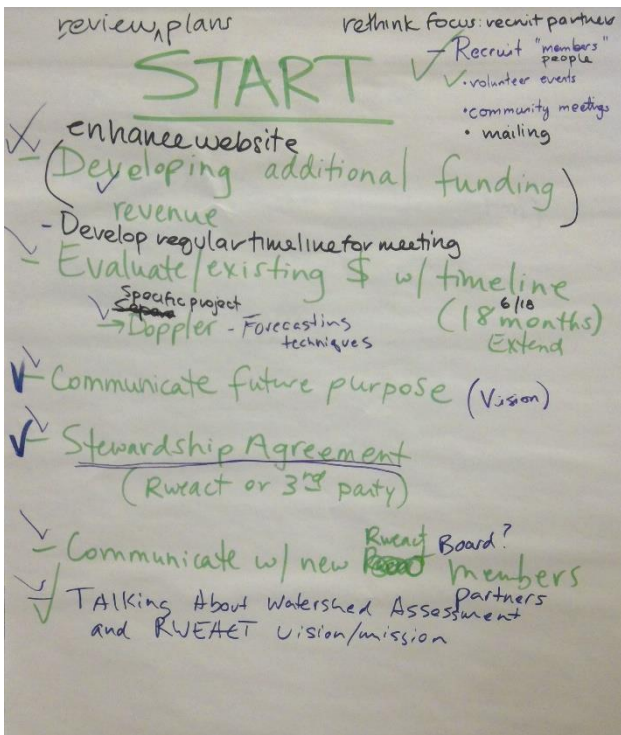 review ^ plans
rethink focus: recruit partners
START
- Recruit "members"
people
• volunteer events
• community meetings
• mailing
enhance website
- (Developing additional funding
revenue)
- Develop regular timeline for meeting
- Evaluate/existing $ w/ timeline
Specific project
→ Doppler - Forecasting
techniques
6/18
(18 months)
Extend
- Communicate future purpose (Vision)
- Stewardship Agreement
(Rweact or 3rd party)
Rweact Board?
- Communicate w/ new members
partners
- TAlking About Watershed Assessment
and RWEACT vision/mission